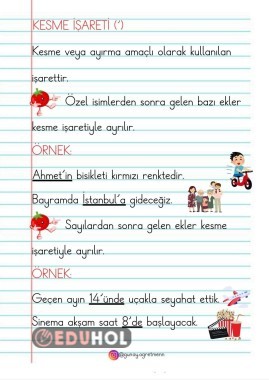 KESME İŞARETİ (')
Kesme veya ayırma amaçlı olarak kullanılan
işarettir.
Özel isimlerden sonra gelen bazı ekler
kesme işaretiyle ayrılır.
ÖRNEK:
Ahmet'in bisikleti kırmızı renktedir.
Bayramda İstanbul'a gideceğiz.
Sayılardan sonra gelen ekler kesme
işaretiyle ayrılır.
ÖRNEK:
Geçen ayın 14'ünde uçakla seyahat ettik.
Sinema akşam saat 8'de başlayacak.
EDUHOL